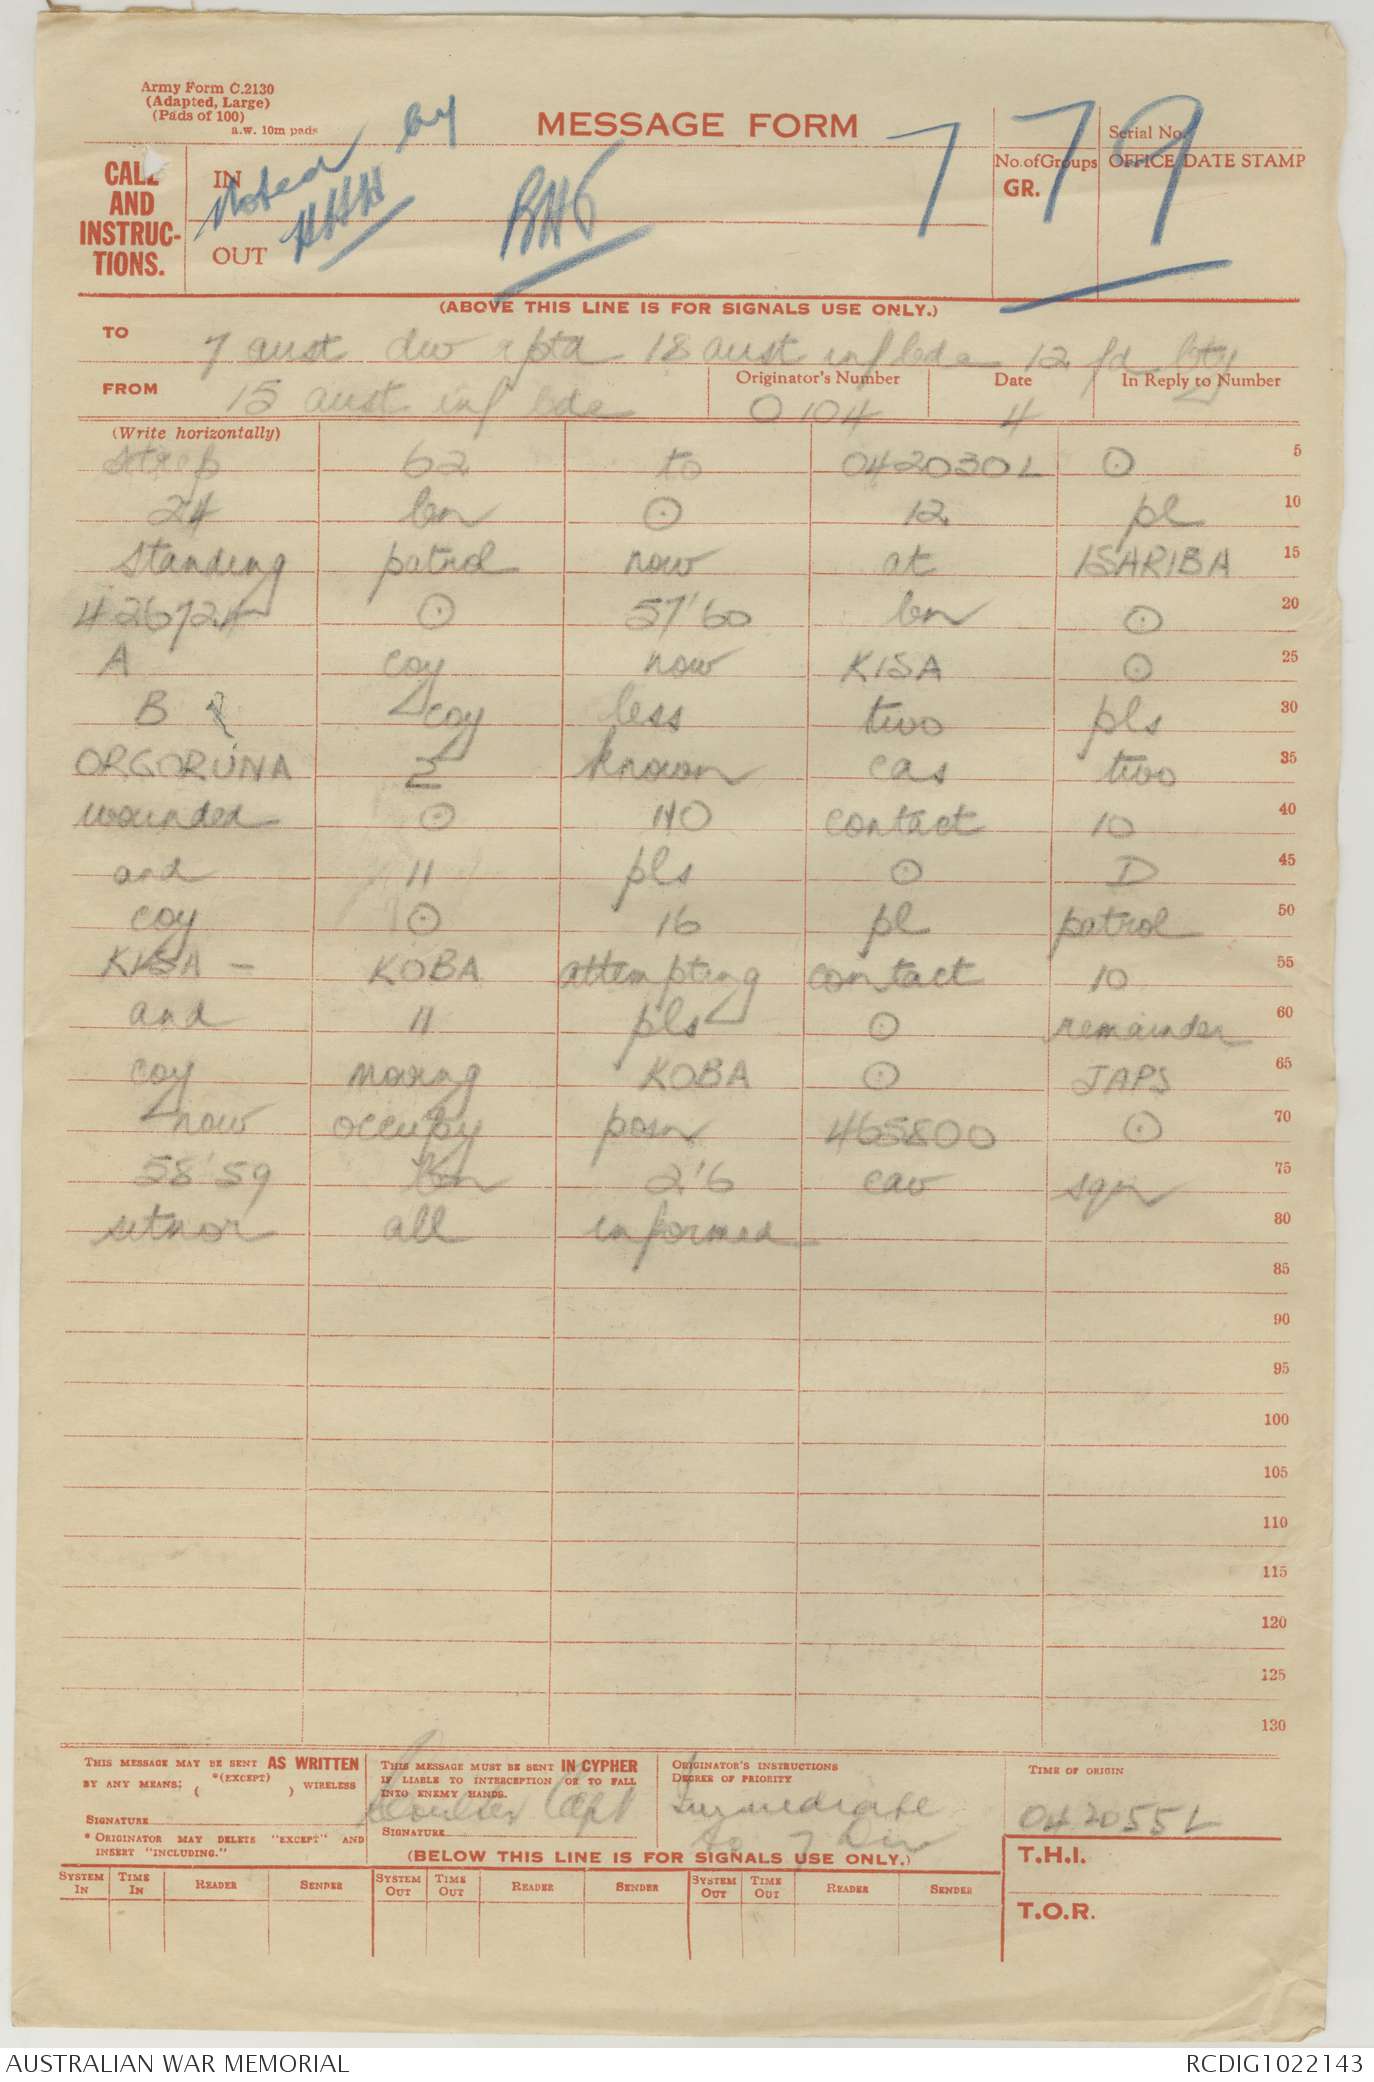 Army Form C.2130
(Adapted, Large)
(Pads of 100)
a.w. 10m pads
MESSAGE FORM
779
Serial No.
CALL AND INSTRUCTIONS.
IN
OUT
Noted by
HHH
No. of Groups
GR.
OFFICE DATE STAMP
(ABOVE THIS LINE IS FOR SIGNALS USE ONLY.)
TO 7 aust div rptd 18 aust inf bde 12 fd bty
FROM 15 aust inf bde
Originator's Number O 104
Date 4
In Reply to Number
(Write horizontally)
sitrep 62 to 042030L ⊙ 5
24 bn ⊙ 12 pl 10
standing patrol now at ISARIBA 15
426724 ⊙ 57'60 bn ⊙ 20
A coy now KISA ⊙ 25
B coy less two pls 30
ORGORUNA known cas two 35
wounded ⊙ NO contact 10 40
and 11 pls ⊙ D 45
coy ⊙ 16 pl patrol 50
KISA - KOBA attempting contact 10 55
and 11 pls ⊙ remainder 60
coy moving KOBA ⊙ JAPS 65
now occupy posn 465800 ⊙ 70
58'59 bn 2'6 cav sqn 75
sitnor all informed 80
85
90
95
100
105
110
115
120
125
130
THIS MESSAGE MAY BE SENT AS WRITTEN
BY ANY MEANS; *(EXCEPT) ( ) WIRELESS
SIGNATURE
* ORIGINATOR MAY DELETE "EXCEPT" AND
INSERT "INCLUDING."
THIS MESSAGE MUST BE SENT IN CYPHER
IF LIABLE TO INTERCEPTION OR TO FALL
INTO ENEMY HANDS.
Capt
SIGNATURE
ORIGINATOR'S INSTRUCTIONS
DEGREE OF PRIORITY
Immediate
to 7 Div
TIME OF ORIGIN
042055L
(BELOW THIS LINE IS FOR SIGNALS USE ONLY.)
T.H.I.
T.O.R.
SYSTEM IN TIME IN READER SENDER SYSTEM OUT TIME OUT READER SENDER SYSTEM OUT TIME OUT READER SENDER
AUSTRALIAN WAR MEMORIAL
RCDIG1022143